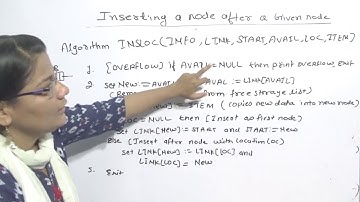 Inserting a node after a Given node
Algorithm INSLOC(INFO, LINK, START, AVAIL, LOC, ITEM)
1. [OVERFLOW] if AVAIL = NULL then print overflow, Exit
2. Set New := AVAIL := LINK[AVAIL]
from free storage list)
:= ITEM (copies new data into new node)
LOC = NULL then [Insert as first node]
Set LINK[New] := START and START := New
Else [Insert after node with location LOC]
Set LINK[New] := LINK[LOC] and
LINK[LOC] := New
5. Exit